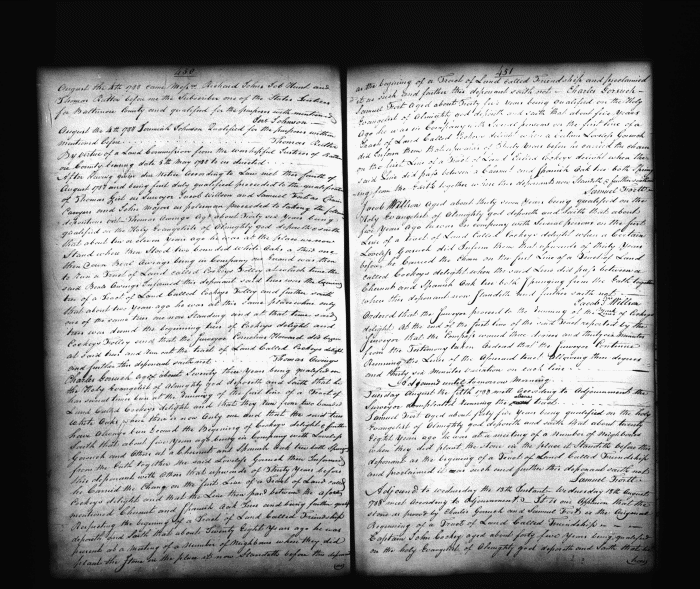 480
August the 4th 1788 came Messrs Richard Johns Job Hunt and
Thomas Rutter before me the Subscriber one of the States Justices
for Baltimore County and qualified for the purposes within mentioned
Jer. Johnson
August the 4th 1788 Jeremiah Johnson Qualified for the purposes within
mentioned before Thomas Rutter
By virtue of a Land Commission from the worshipful Justices of
County bearing date 8th May 1788 to us directed
After Having given due notice According to Law met this fourth of
August 1788 and being first duly qualified proceeded to the qualification
of Thomas as Surveyor Jacob William and Samuel Chain
Carriers and John as poleman proceeded to taking the following
Thomas Owings Aged about Forty six Years being
qualified on the Holy Evangelist of Almighty God deposeth and saith
that about ten or eleven years ago he was at the place where now
Stand when there Stood two bounded White Oaks a third one
then down Beal Owings being in Company and was then
to Run a Tract of Land called Cockeys Folly at which time the
said Beal Owings Informed this deponant said trees was the beginning
tree of a Tract of Land Called Cockeys Folly and further saith
that about two years ago he was at this same place when
one of the same trees was Standing and at that time said
trees was deemed the beginning trees of Cockeys delight and
Cockeys Folly and that the Surveyor Cornelius Howard did begin
at said trees and run out the tract of Land Called Cockeys delight
and further this deponant saith not Thomas Owings
Charles Gorsuch Aged about Seventy three Years being qualified on
the Holy Evangelist of Almighty God deposeth and Saith that he
has several times been at the running of the first line of a Tract of
Land Called Cockeys delight and that they run from two bounded
White Oaks where there is now Only one and that the said trees
have Always been deemed the Beginning of Cockeys delight & further
saith that about five Years ago being in Company with Loveless
Gorsuch and others at a Chesnut and Spanish Oak tree both springing
from the Earth together the said Loveless Gorsuch then Informed
this deponant with others that upwards of Thirty Years before
he Carried the Chain on the first Line of a Tract of Land called
Cockeys delight and that the Line then past between the afore
mentioned Chesnut and Spanish Oak trees and being further
Respecting the beginning of a Tract of Land Called Friendship
deposeth and saith that about Twenty Eight Years ago he was
present at a meeting of a Number of Neighbours when they did
plant the Stone in the place it now Standeth before this deponant
481
as the begining of a Tract of Land Called Friendship and proclaimed
it as such and further this deponant saith not Charles Gorsuch
Samuel Trott Aged about Forty five Years being qualified on the Holy
Evangelist of Almighty God deposeth and saith that about five Years
Ago he was in Company with several persons on the first line of a
Tract of Land Called Cockeys delight when a Certain Loveless Gorsuch
did Inform them that upwards of Thirty Years before he carried the chain
on the first Line of a Tract of Land Called Cockeys delight when the
said Line did pass between a Chesnut and Spanish Oak tree both Spring
ing from the Earth together where this deponant now Standeth & further saith not
Samuel Trott
Jacob William Aged about thirty seven Years being qualified on the
Holy Evangelist of Almighty God deposeth and Saith that about
five Years ago he was in company with several persons on the first
Line of a tract of Land Called Cockeys delight when a Certain
Loveless Gorsuch did Inform them that upwards of thirty Years
before he Carried the Chain on the first Line of a Tract of Land
Called Cockeys delight when the said Line did pass between a
Chesnut and Spanish Oak tree both Springing from the Earth together
where this deponant now Standeth and further saith not
Jacob William
Ordered that the Surveyor proceed to the running of the of Cockeys
delight At the end of the first line of the said Tract reported by the
Surveyor that the Compass варied three degrees and thirty six Minutes
from the Testimony taken Ordered that the Surveyor Continue
Running the Lines of the Aforesaid tract Allowing three degrees
and thirty six Minutes variation on each line
Adjourned until tomorrow Morning
Tuesday August the 5th 1788 met according to Adjournment the
Surveyor Running the said tract
Samuel Trott Aged about forty five Years being qualified on the holy
Evangelist of Almighty God deposeth and saith that about twenty
Eight Years ago he was at a meeting of a Number of Neighbours
when they did plant the Stone in the place it Standeth before this
deponant as the begining of a Tract of Land Called Friendship
and proclaimed it as such and further this deponant saith not
Samuel Trott
Adjourned to Wednesday the 13th Instant Wednesday 13th August
1788 met According to Adjournment It is our Opinion that the
stone as proved by Charles Gorsuch and Samuel Trott is the Original
Beginning of a Tract of Land Called Friendship
Captain John Cockey aged about forty five Years being qualified
on the holy Evangelist of Almighty God deposeth and Saith that